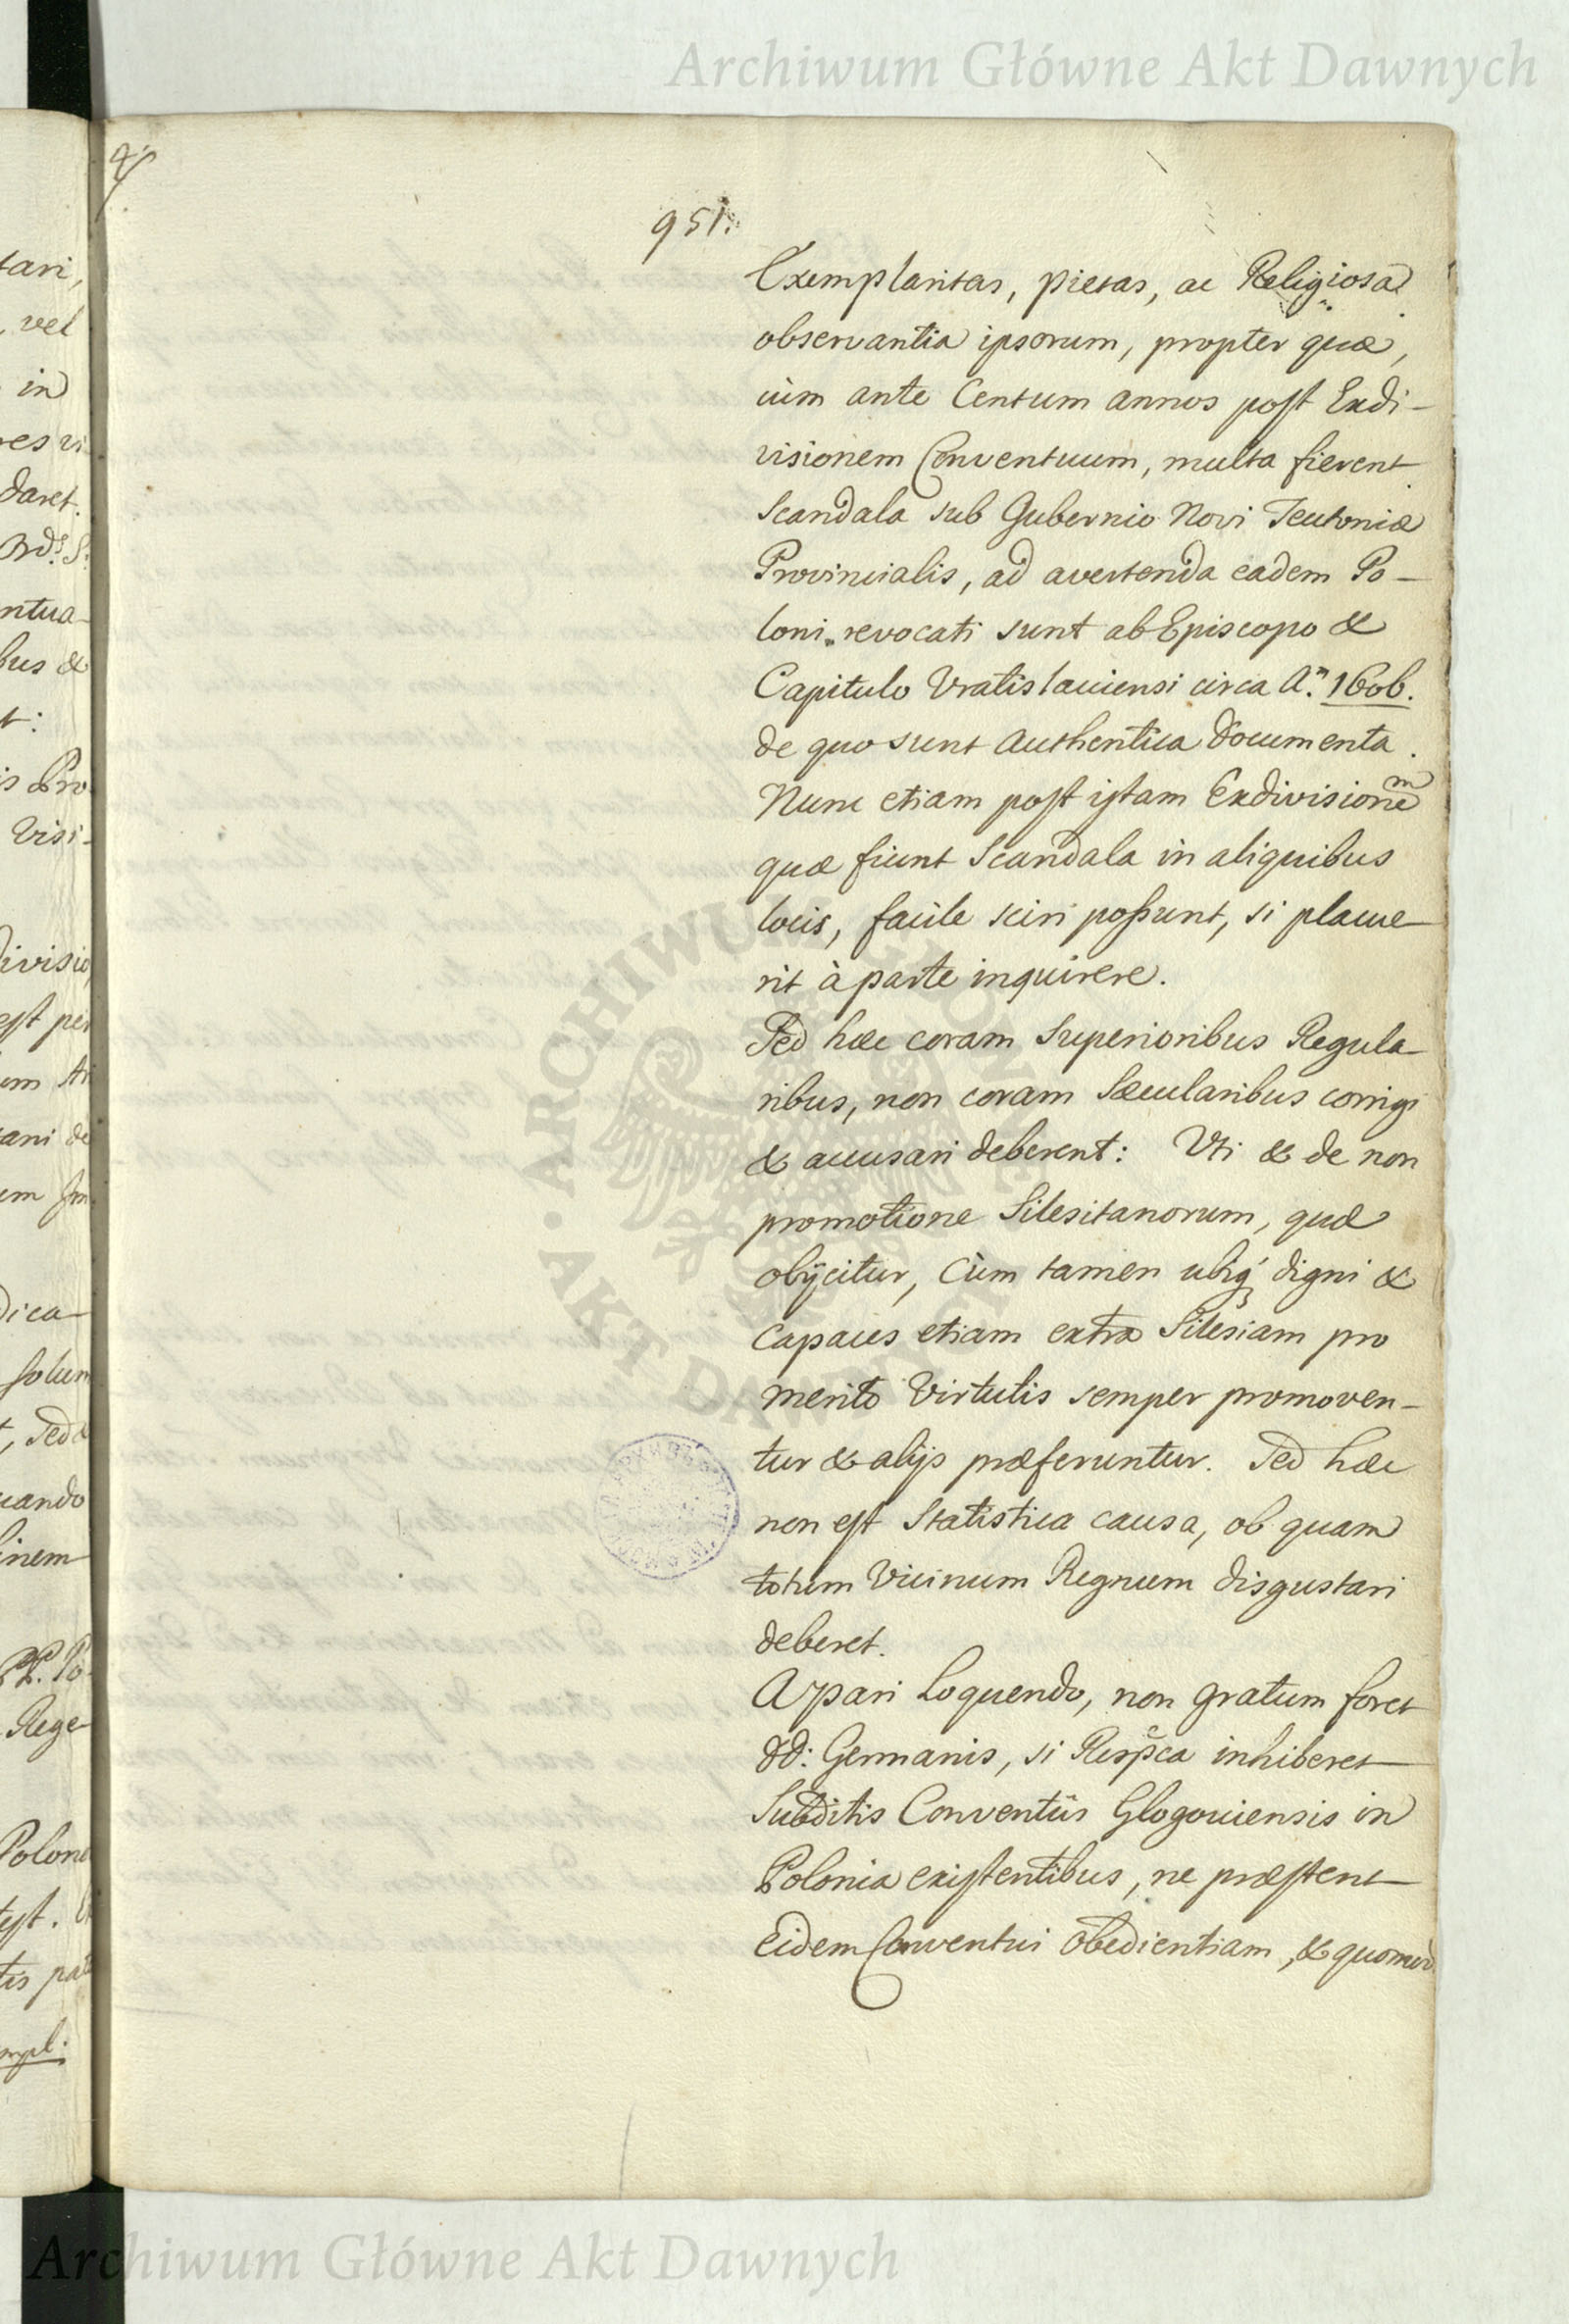 Archiwum Główne Akt Dawnych
951.
Exemplaritas, pietas, ac Religiosa
observantia ipsorum, propter quæ,
cùm ante Centum annos post Exdi-
visionem Conventuum, multa fierent
Scandala sub Gubernio Novi Teutoniæ
Provincialis, ad avertenda eadem Po-
loni revocati sunt ab Episcopo &
Capitulo Vratislaviensi circa A.ⁿ 1606.
de quo sunt Authentica documenta.
Nunc etiam post istam Exdivisionem
quæ fiunt Scandala in aliquibus
locis, facile sciri possunt, si placue-
rit à parte inquirere.
Sed hæc coram Superioribus Regula-
ribus, non coram Sæcularibus corrigi
& accusari deberent: Vti & de non
promotione Silesitanorum, quæ
obijcitur, Cùm tamen ubiq; digni &
capaces etiam extra Silesiam pro
merito Virtutis semper promoven-
tur & alijs præferuntur. Sed hæc
non est Statistica causa, ob quam
totum Vicinum Regnum disgustari
deberet.
A pari Loquendo, non gratum foret
DD: Germanis, si Respca inhiberet
Subditis Conventûs Glogoviensis in
Polonia existentibus, ne præstent
Eidem Conventui obedientiam, & quomod
tari,
vel
in
daret.
ntua-
bus &
is Pro
Visi-
divisio
est per
dica-
solum
uando
PP. Po
Rege-
Polone
ARCHIWUM GŁÓWNE AKT DAWNYCH
Archiwum Główne Akt Dawnych